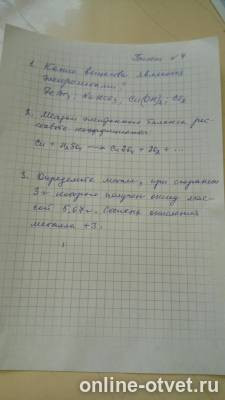 Билет № 4
1. Какие вещества являются
электролитами:
NaHCO3, Cu(OH)2,
2. Методом электронного баланса рас-
коэффициенты
Cu + H2SO4 → + SO2 + ...
3. Определите металл, при сгорании
3 г которого получен оксид мас-
сой 5,67 г. Степень окисления
металла +3.
online-otvet.ru